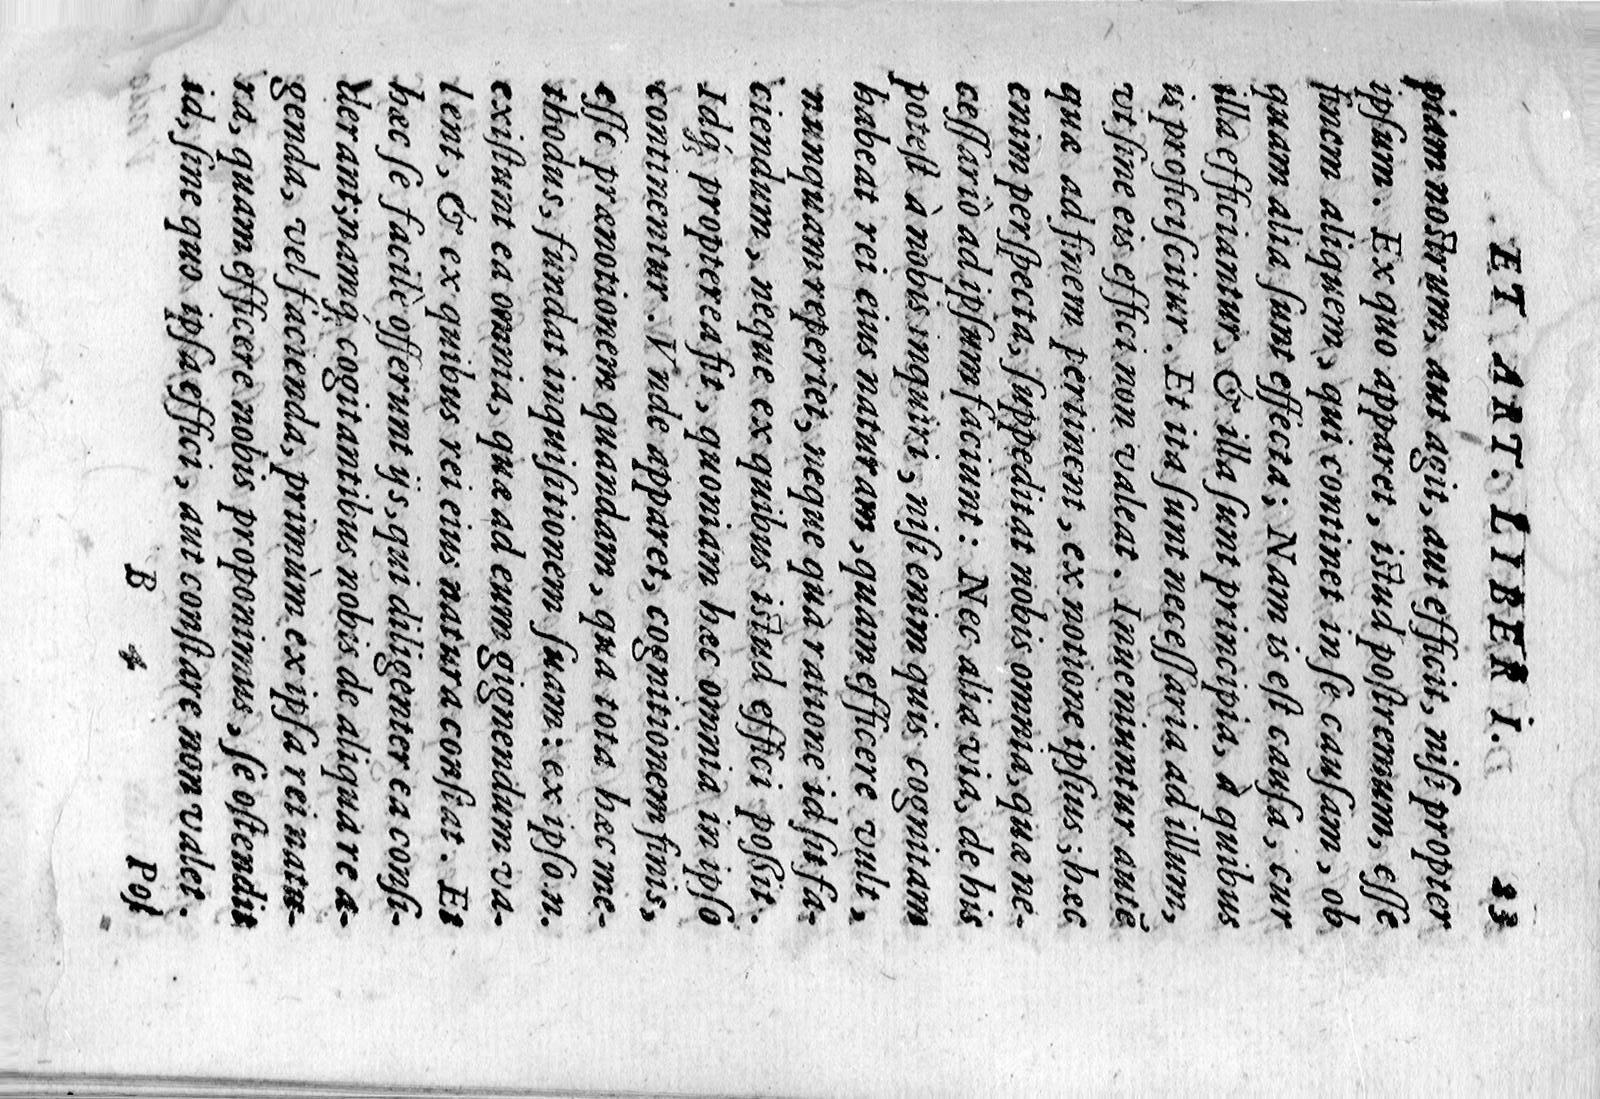 ET ART. LIBER I. 23
piam nostrum, aut agit, aut efficit, nisi propter
ipſum. Ex quo apparet, iſtud poſtremum, eſſe
finem aliquem, qui continet in ſe cauſam, ob
quam alia ſunt effecta; Nam is eſt cauſa, cur
illa efficiantur, & illa ſunt principia, à quibus
is proficiſcitur. Et ita ſunt neceſſaria ad illum,
vt ſine eis effici non valeat. Inueniuntur autē
quæ ad finem pertinent, ex notione ipſius; hæc
enim perſpecta, ſuppeditat nobis omnia, quæ ne-
ceſſariò ad ipſum faciunt: Nec alia via, de his
poteſt à nobis inquiri, niſi enim quis cognitam
habeat rei eius naturam, quam efficere vult,
nunquam reperiet, neque qua ratione id ſit fa-
ciendum, neque ex quibus iſtud effici poſſit.
Idq; propterea fit, quoniam hæc omnia in ipſo
continentur. Vnde apparet, cognitionem finis,
eſſe prænotionem quandam, qua tota hæc me-
thodus, fundat inquiſitionem ſuam: ex ipſo n.
exiſtunt ea omnia, quæ ad eum gignendum va-
lent, & ex quibus rei eius natura conſtat. Et
hæc ſe facilè offerunt ijs, qui diligenter ea conſi-
derant; namq; cogitantibus nobis de aliqua re a-
genda, vel facienda, primùm ex ipſa rei natu-
ra, quam efficere nobis proponimus, ſe oſtendit
id, ſine quo ipſa effici, aut conſtare non valet.
B 4 Poſ